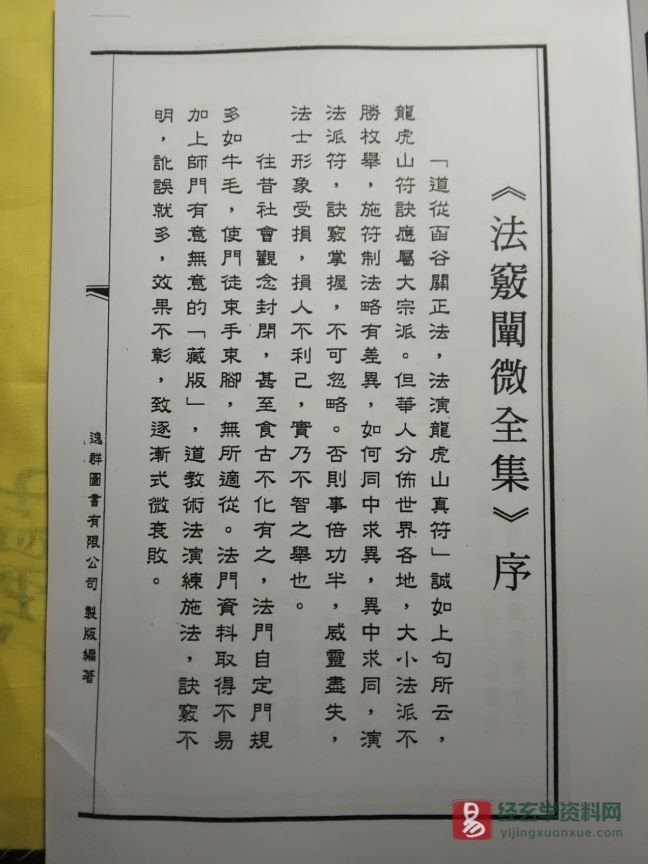 《法竅闡微全集》序
「道從函谷關正法，法演龍虎山真符」誠如上句所云，
龍虎山符訣應屬大宗派。但華人分佈世界各地，大小法派不
勝枚舉，施符制法略有差異，如何同中求異，異中求同，演
法派符，訣竅掌握，不可忽略。否則事倍功半，威靈盡失，
法士形象受損，損人不利己，實乃不智之舉也。
往昔社會觀念封閉，甚至食古不化有之，法門自定門規
多如牛毛，使門徒束手束腳，無所適從。法門資料取得不易
加上師門有意無意的「藏版」，道教術法演練施法，訣竅不
明，訛誤就多，效果不彰，致逐漸式微衰敗。
逸群圖書有限公司 製版編著
易
经玄学资料网
yijingxuanxue.com